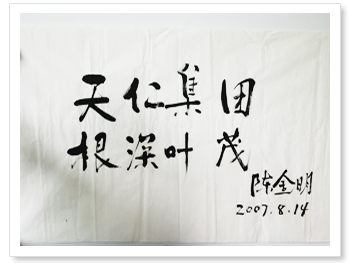 天仁集团
根深叶茂
陈金明
2007.8.14